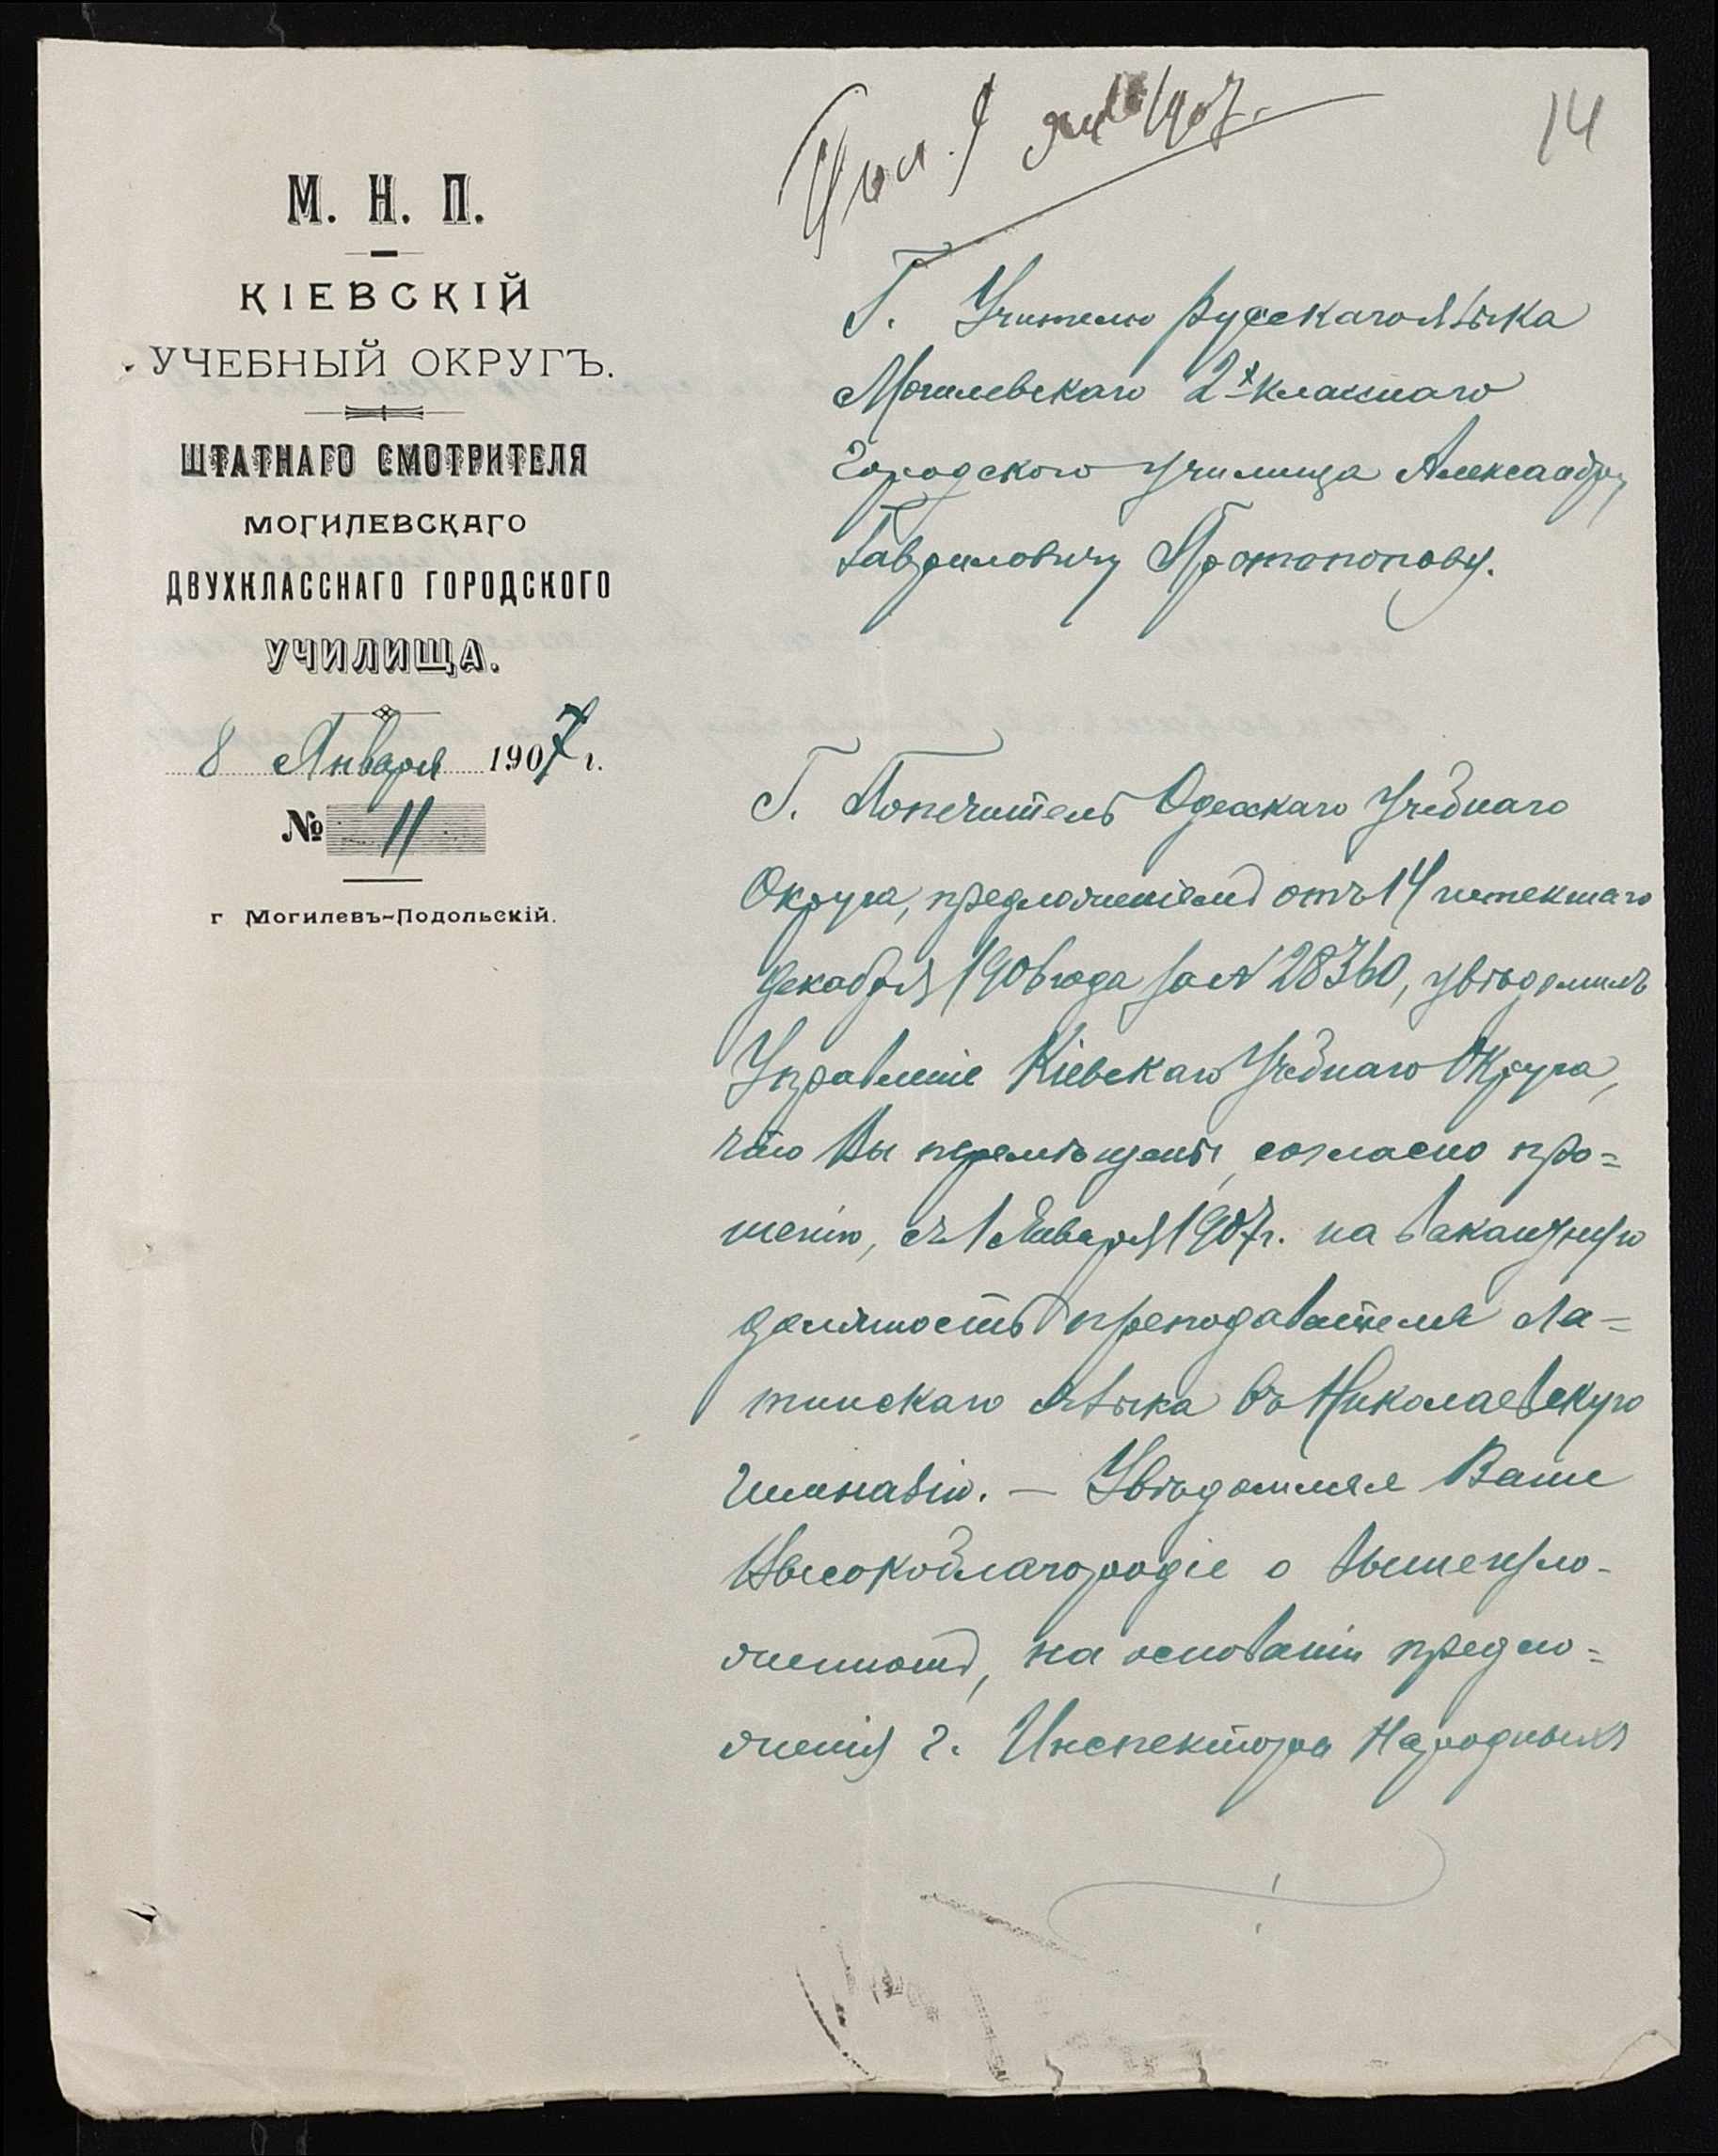 14
М. Н. П.
КІЕВСКІЙ
УЧЕБНЫЙ ОКРУГЪ.
ШТАТНАГО СМОТРИТЕЛЯ
МОГИЛЕВСКАГО
ДВУХКЛАССНАГО ГОРОДСКОГО
УЧИЛИЩА.
8 Января 1907 г.
№ 11
г Могилевъ-Подольскій.
Г. Учителю русскаго языка
Могилевскаго 2х класснаго
Городского Училища Александру
Гавриловичу Протопопову.
Г. Попечитель Одесскаго Учебнаго
Округа, предложеніемъ отъ 14 истекшаго
Декабря 1906 года за № 28360, увѣдомилъ
Управленіе Кіевскаго Учебнаго Округа,
что Вы перемѣщены, согласно про=
шенію, съ 1 Января 1907 г. на вакантную
должность преподавателя Ла=
тинскаго языка въ Николаевскую
гимназію. — Увѣдомляя Ваше
Высокоблагородіе о вышеизло-
женномъ, на основаніи предло=
женія г. Инспектора Народныхъ